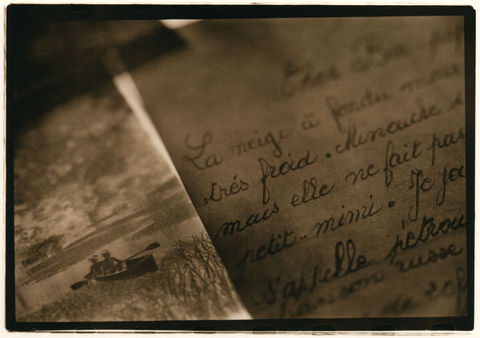 Cher Bon pap
La neige à fondu mons
très froid. Minouche e
mais elle ne fait pas
petit-mimi. Je ja
s'appelle pétrou
chanson russe
de